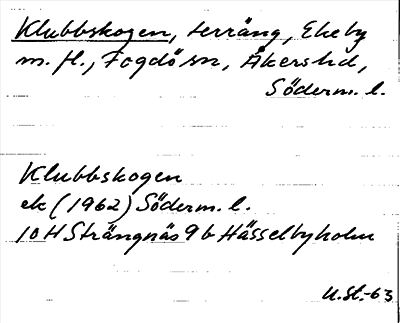 Klubbskogen, terräng, Ekeby
m. fl., Fogdö sn, Åkers hd,
Söderm. l.
Klubbskogen
ek (1962) Söderm. l.
10H Strängnäs 9b Hässelbyholm
U.St.-63